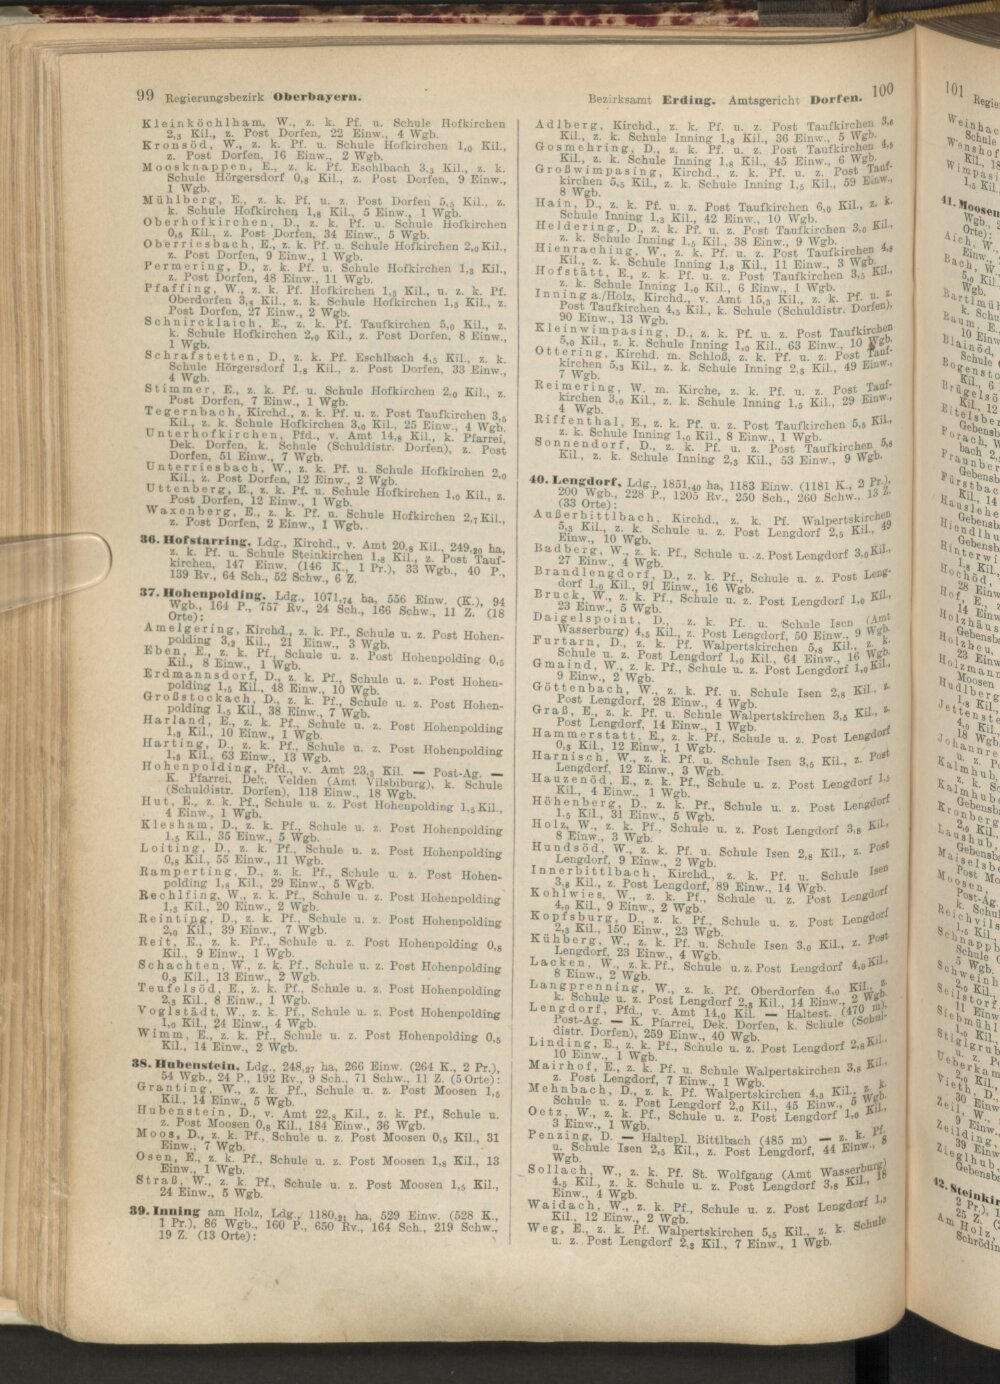 99 Regierungsbezirk Oberbayern.
Kleinköchlham, W., z. k. Pf. u. Schule Hofkirchen
2,3 Kil., z. Post Dorfen, 22 Einw., 4 Wgb.
Kronsöd, W., z. k. Pf. u. Schule Hofkirchen 1,0 Kil.,
z. Post Dorfen, 16 Einw., 2 Wgb.
Moosknappen, E., z. k. Pf. Eschlbach 3,3 Kil., z. k.
Schule Hörgersdorf 0,8 Kil., z. Post Dorfen, 9 Einw.,
1 Wgb.
Mühlberg, E., z. k. Pf. u. z. Post Dorfen 5,5 Kil., z.
k. Schule Hofkirchen 1,8 Kil., 5 Einw., 1 Wgb.
Oberhofkirchen, D., z. k. Pf. u. Schule Hofkirchen
0,5 Kil., z. Post Dorfen, 34 Einw., 5 Wgb.
Oberriesbach, E., z. k. Pf. u. Schule Hofkirchen 2,0 Kil.,
z. Post Dorfen, 9 Einw., 1 Wgb.
Permering, D., z. k. Pf. u. Schule Hofkirchen 1,3 Kil.,
z. Post Dorfen, 48 Einw., 11 Wgb.
Pfaffing, W., z. k. Pf. Hofkirchen 1,3 Kil., u. z. k. Pf.
Oberdorfen 3,8 Kil., z. k. Schule Hofkirchen 1,3 Kil., z.
Post Dorfen, 27 Einw., 2 Wgb.
Schnircklaich, E., z. k. Pf. Taufkirchen 5,0 Kil., z.
k. Schule Hofkirchen 2,0 Kil., z. Post Dorfen, 8 Einw.,
1 Wgb.
Schrafstetten, D., z. k. Pf. Eschlbach 4,5 Kil., z. k.
Schule Hörgersdorf 1,8 Kil., z. Post Dorfen, 33 Einw.,
4 Wgb.
Stimmer, E., z. k. Pf. u. Schule Hofkirchen 2,0 Kil., z.
Post Dorfen, 7 Einw., 1 Wgb.
Tegernbach, Kirchd., z. k. Pf. u. z. Post Taufkirchen 3,5
Kil., z. k. Schule Hofkirchen 3,0 Kil., 25 Einw., 4 Wgb.
Unterhofkirchen, Pfd., v. Amt 14,8 Kil., k. Pfarrei,
Dek. Dorfen, k. Schule (Schuldistr. Dorfen), z. Post
Dorfen, 51 Einw., 7 Wgb.
Unterriesbach, W., z. k. Pf. u. Schule Hofkirchen 2,0
Kil., z. Post Dorfen, 12 Einw., 2 Wgb.
Uttenberg, E., z. k. Pf. u. Schule Hofkirchen 1,0 Kil., z.
Post Dorfen, 12 Einw., 1 Wgb.
Waxenberg, E., z. k. Pf. u. Schule Hofkirchen 2,7 Kil.,
z. Post Dorfen, 2 Einw., 1 Wgb.
36. Hofstarring, Ldg., Kirchd., v. Amt 20,8 Kil., 249,20 ha,
z. k. Pf. u. Schule Steinkirchen 1,8 Kil., z. Post Tauf-
kirchen, 147 Einw. (146 K., 1 Pr.), 33 Wgb., 40 P.,
139 Rv., 64 Sch., 52 Schw., 6 Z.
37. Hohenpolding, Ldg., 1071,74 ha, 556 Einw. (K.), 94
Wgb., 164 P., 757 Rv., 24 Sch., 166 Schw., 11 Z. (18
Orte):
Amelgering, Kirchd., z. k. Pf., Schule u. z. Post Hohen-
polding 3,2 Kil., 21 Einw., 3 Wgb.
Eben, E., z. k. Pf., Schule u. z. Post Hohenpolding 0,5
Kil., 8 Einw., 1 Wgb.
Erdmannsdorf, D., z. k. Pf., Schule u. z. Post Hohen-
polding 1,5 Kil., 48 Einw., 10 Wgb.
Großstockach, D., z. k. Pf., Schule u. z. Post Hohen-
polding 1,5 Kil., 38 Einw., 7 Wgb.
Harland, E., z. k. Pf., Schule u. z. Post Hohenpolding
1,3 Kil., 10 Einw., 1 Wgb.
Harting, D., z. k. Pf., Schule u. z. Post Hohenpolding
1,8 Kil., 63 Einw., 13 Wgb.
Hohenpolding, Pfd., v. Amt 23,3 Kil. — Post-Ag. —
K. Pfarrei, Dek. Velden (Amt Vilsbiburg), k. Schule
(Schuldistr. Dorfen), 118 Einw., 18 Wgb.
Hut, E., z. k. Pf., Schule u. z. Post Hohenpolding 1,5 Kil.,
4 Einw., 1 Wgb.
Klesham, D., z. k. Pf., Schule u. z. Post Hohenpolding
1,5 Kil., 35 Einw., 5 Wgb.
Loiting, D., z. k. Pf., Schule u. z. Post Hohenpolding
0,8 Kil., 55 Einw., 11 Wgb.
Ramperting, D., z. k. Pf., Schule u. z. Post Hohen-
polding 1,8 Kil., 29 Einw., 5 Wgb.
Rechlfing, W., z. k. Pf., Schule u. z. Post Hohenpolding
1,3 Kil., 20 Einw., 2 Wgb.
Reinting, D., z. k. Pf., Schule u. z. Post Hohenpolding
2,0 Kil., 39 Einw., 7 Wgb.
Reit, E., z. k. Pf., Schule u. z. Post Hohenpolding 0,8
Kil., 9 Einw., 1 Wgb.
Schachten, W., z. k. Pf., Schule u. z. Post Hohenpolding
0,8 Kil., 13 Einw., 2 Wgb.
Teufelsöd, E., z. k. Pf., Schule u. z. Post Hohenpolding
2,3 Kil., 8 Einw., 1 Wgb.
Voglstädt, W., z. k. Pf., Schule u. z. Post Hohenpolding
1,0 Kil., 24 Einw., 4 Wgb.
Wimm, E., z. k. Pf., Schule u. z. Post Hohenpolding 0,5
Kil., 14 Einw., 2 Wgb.
38. Hubenstein, Ldg., 248,27 ha, 266 Einw. (264 K., 2 Pr.),
54 Wgb., 24 P., 192 Rv., 9 Sch., 71 Schw., 11 Z. (5 Orte):
Granting, W., z. k. Pf., Schule u. z. Post Moosen 1,5
Kil., 14 Einw., 5 Wgb.
Hubenstein, D., v. Amt 22,8 Kil., z. k. Pf., Schule u.
z. Post Moosen 0,8 Kil., 184 Einw., 36 Wgb.
Moos, D., z. k. Pf., Schule u. z. Post Moosen 0,5 Kil., 31
Einw., 7 Wgb.
Osen, E., z. k. Pf., Schule u. z. Post Moosen 1,8 Kil., 13
Einw., 1 Wgb.
Straß, W., z. k. Pf., Schule u. z. Post Moosen 1,5 Kil.,
24 Einw., 5 Wgb.
39. Inning am Holz, Ldg., 1180,21 ha, 529 Einw. (528 K.,
1 Pr.), 86 Wgb., 160 P., 650 Rv., 164 Sch., 219 Schw.,
19 Z. (13 Orte):
Bezirksamt Erding. Amtsgericht Dorfen. 100
Adlberg, Kirchd., z. k. Pf. u. z. Post Taufkirchen 3,8
Kil., z. k. Schule Inning 1,8 Kil., 36 Einw., 5 Wgb.
Gosmehring, D., z. k. Pf. u. z. Post Taufkirchen 4,5
Kil., z. k. Schule Inning 1,8 Kil., 45 Einw., 6 Wgb.
Großwimpasing, Kirchd., z. k. Pf. u. z. Post Tauf-
kirchen 5,5 Kil., z. k. Schule Inning 1,5 Kil., 59 Einw.,
8 Wgb.
Hain, D., z. k. Pf. u. z. Post Taufkirchen 6,0 Kil., z. k.
Schule Inning 1,3 Kil., 42 Einw., 10 Wgb.
Heldering, D., z. k. Pf. u. z. Post Taufkirchen 3,0 Kil.,
z. k. Schule Inning 1,5 Kil., 38 Einw., 9 Wgb.
Hienraching, W., z. k. Pf. u. z. Post Taufkirchen 4,8
Kil., z. k. Schule Inning 1,8 Kil., 11 Einw., 3 Wgb.
Hofstätt, E., z. k. Pf. u. z. Post Taufkirchen 3,5 Kil.,
z. k. Schule Inning 1,0 Kil., 6 Einw., 1 Wgb.
Inning a./Holz, Kirchd., v. Amt 15,3 Kil., z. k. Pf. u. z.
Post Taufkirchen 4,5 Kil., k. Schule (Schuldistr. Dorfen),
90 Einw., 13 Wgb.
Kleinwimpasing, D., z. k. Pf. u. z. Post Taufkirchen
5,0 Kil., z. k. Schule Inning 1,0 Kil., 63 Einw., 10 Wgb.
Ottering, Kirchd. m. Schloß, z. k. Pf. u. z. Post Tauf-
kirchen 5,3 Kil., z. k. Schule Inning 2,3 Kil., 49 Einw.,
7 Wgb.
Reimering, W. m. Kirche, z. k. Pf. u. z. Post Tauf-
kirchen 3,0 Kil., z. k. Schule Inning 1,5 Kil., 29 Einw.,
4 Wgb.
Riffenthal, E., z. k. Pf. u. z. Post Taufkirchen 5,5 Kil.,
z. k. Schule Inning 1,0 Kil., 8 Einw., 1 Wgb.
Sonnendorf, D., z. k. Pf. u. z. Post Taufkirchen 5,8
Kil., z. k. Schule Inning 2,3 Kil., 53 Einw., 9 Wgb.
40. Lengdorf, Ldg., 1851,40 ha, 1183 Einw. (1181 K., 2 Pr.),
200 Wgb., 228 P., 1205 Rv., 250 Sch., 260 Schw., 13 Z.
(33 Orte):
Außerbittlbach, Kirchd., z. k. Pf. Walpertskirchen
5,3 Kil., z. k. Schule u. z. Post Lengdorf 2,5 Kil., 49
Einw., 10 Wgb.
Badberg, W., z. k. Pf., Schule u. z. Post Lengdorf 3,0 Kil.,
27 Einw., 4 Wgb.
Brandlengdorf, D., z. k. Pf., Schule u. z. Post Leng-
dorf 1,0 Kil., 91 Einw., 16 Wgb.
Bruck, W., z. k. Pf., Schule u. z. Post Lengdorf 1,0 Kil.,
23 Einw., 5 Wgb.
Daigelspoint, D., z. k. Pf. u. Schule Isen (Amt
Wasserburg) 4,5 Kil., z. Post Lengdorf, 50 Einw., 9 Wgb.
Furtarn, D., z. k. Pf. Walpertskirchen 5,8 Kil., z. k.
Schule u. z. Post Lengdorf 1,0 Kil., 64 Einw., 16 Wgb.
Gmaind, W., z. k. Pf., Schule u. z. Post Lengdorf 1,0 Kil.,
9 Einw., 2 Wgb.
Göttenbach, W., z. k. Pf. u. Schule Isen 2,8 Kil., z.
Post Lengdorf, 28 Einw., 4 Wgb.
Graß, E., z. k. Pf. u. Schule Walpertskirchen 3,5 Kil., z.
Post Lengdorf, 14 Einw., 1 Wgb.
Hammerstatt, E., z. k. Pf., Schule u. z. Post Lengdorf
0,3 Kil., 12 Einw., 1 Wgb.
Harnisch, W., z. k. Pf. u. Schule Isen 3,5 Kil., z. Post
Lengdorf, 12 Einw., 3 Wgb.
Hauzenöd, E., z. k. Pf., Schule u. z. Post Lengdorf 1,5
Kil., 4 Einw., 1 Wgb.
Höhenberg, D., z. k. Pf., Schule u. z. Post Lengdorf
1,5 Kil., 31 Einw., 5 Wgb.
Holz, W., z. k. Pf., Schule u. z. Post Lengdorf 3,8 Kil.,
8 Einw., 3 Wgb.
Hundsöd, W., z. k. Pf. u. Schule Isen 2,8 Kil., z. Post
Lengdorf, 9 Einw., 2 Wgb.
Innerbittlbach, Kirchd., z. k. Pf. u. Schule Isen
3,8 Kil., z. Post Lengdorf, 89 Einw., 14 Wgb.
Kohlwies, W., z. k. Pf., Schule u. z. Post Lengdorf
4,0 Kil., 9 Einw., 2 Wgb.
Kopfsburg, D., z. k. Pf., Schule u. z. Post Lengdorf
2,3 Kil., 150 Einw., 23 Wgb.
Kühberg, W., z. k. Pf. u. Schule Isen 3,0 Kil., z. Post
Lengdorf, 23 Einw., 4 Wgb.
Lacken, W., z. k. Pf., Schule u. z. Post Lengdorf 4,0 Kil.,
8 Einw., 2 Wgb.
Langprenning, W., z. k. Pf. Oberdorfen 4,0 Kil., z.
k. Schule u. z. Post Lengdorf 2,3 Kil., 14 Einw., 2 Wgb.
Lengdorf, Pfd., v. Amt 14,0 Kil. — Haltest. (470 m),
Post-Ag. — K. Pfarrei, Dek. Dorfen, k. Schule (Schul-
distr. Dorfen), 259 Einw., 40 Wgb.
Linding, E., z. k. Pf., Schule u. z. Post Lengdorf 2,8 Kil.,
10 Einw., 1 Wgb.
Mairhof, E., z. k. Pf. u. Schule Walpertskirchen 3,8 Kil.,
z. Post Lengdorf, 7 Einw., 1 Wgb.
Mehnbach, D., z. k. Pf. Walpertskirchen 4,3 Kil., z. k.
Schule u. z. Post Lengdorf 2,0 Kil., 45 Einw., 5 Wgb.
Oetz, W., z. k. Pf., Schule u. z. Post Lengdorf 1,0 Kil.,
3 Einw., 1 Wgb.
Penzing, D. — Haltepl. Bittlbach (485 m) — z. k. Pf.
u. Schule Isen 2,5 Kil., z. Post Lengdorf, 44 Einw., 8
Wgb.
Sollach, W., z. k. Pf. St. Wolfgang (Amt Wasserburg)
4,5 Kil., z. k. Schule u. z. Post Lengdorf 3,8 Kil., 18
Einw., 4 Wgb.
Waidach, W., z. k. Pf., Schule u. z. Post Lengdorf 1,3
Kil., 12 Einw., 2 Wgb.
Weg, E., z. k. Pf. Walpertskirchen 5,5 Kil., z. k. Schule
u. z. Post Lengdorf 2,3 Kil., 7 Einw., 1 Wgb.
101 Regie
41. Moosen
42. Steinkir